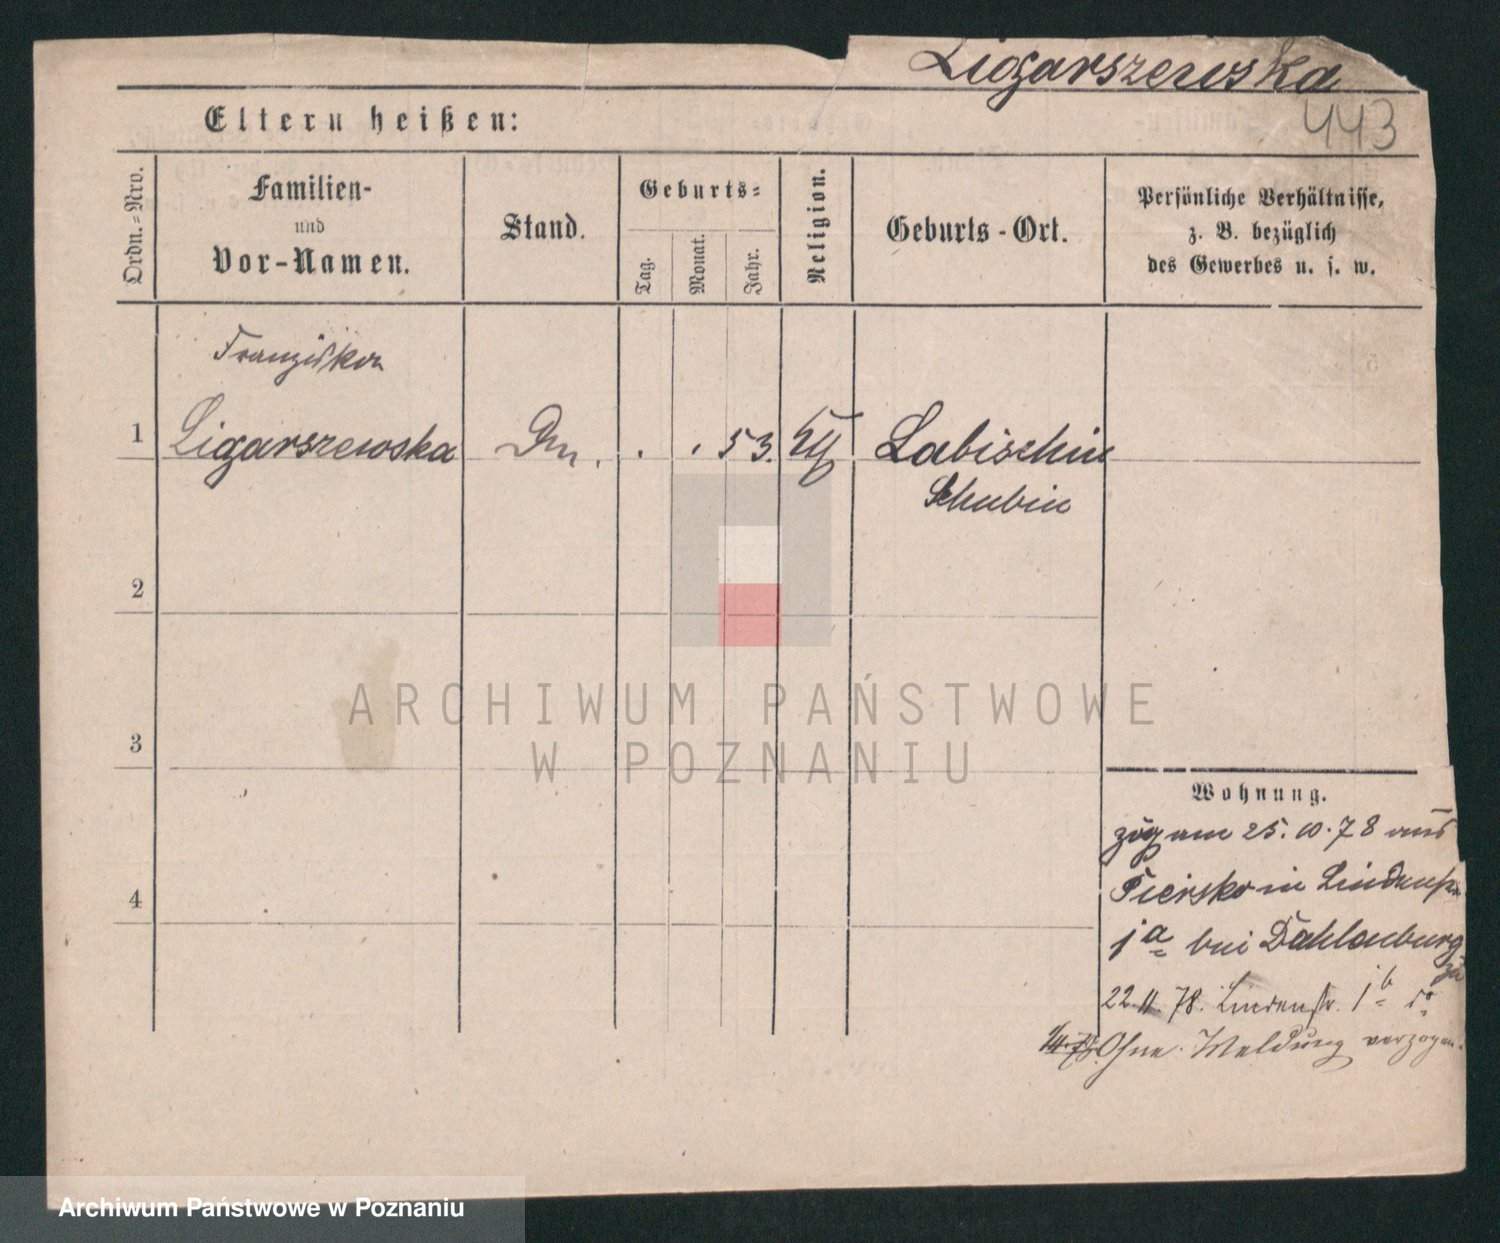 Ligarszewska
443
Eltern heißen:
Ordn.=Nro.
Familien-
und
Vor-Namen.
Stand.
Geburts=
Tag.
Monat.
Jahr.
Religion.
Geburts-Ort.
Persönliche Verhältnisse,
z. B. bezüglich
des Gewerbes u. s. w.
Franziska
1 Ligarszewska . . 53. Labischin
Schubin
2
3
4
Wohnung.
zog am 25. 10. 78 aus
in Lindenstr
1a bei Dahlenburg
zu
22 11. 78. Lindenstr. 1b
Ohne Meldung verzogen.
ARCHIWUM PAŃSTWOWE
W POZNANIU
Archiwum Państwowe w Poznaniu